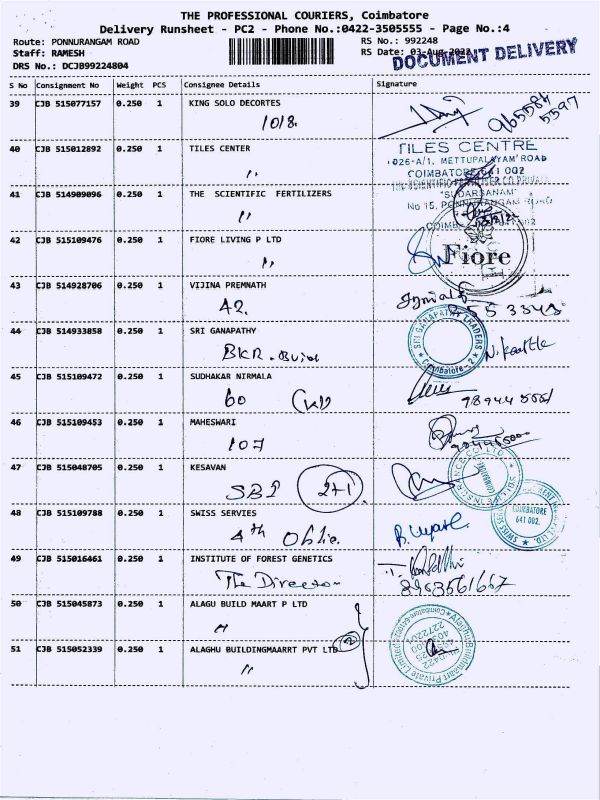 THE PROFESSIONAL COURIERS, Coimbatore
Delivery Runsheet - PC2 - Phone No.:0422-3505555 - Page No.:4
Route: PONNURANGAM ROAD
RS No.: 992248
Staff: RAMESH
RS Date: 03-Aug-2022
DOCUMENT DELIVERY
DRS No.: DCJB99224804
S No Consignment No Weight PCS Consignee Details Signature
39 CJB 515077157 0.250 1 KING SOLO DECORTES
1018.
965584
5597
40 CJB 515012892 0.250 1 TILES CENTER
"
TILES CENTRE
1026-A/1, METTUPALAYAM ROAD
COIMBATORE 641 002
41 CJB 514909096 0.250 1 THE SCIENTIFIC FERTILIZERS
"
"SUDARSANAM"
No 15, PONNURANGAM ROAD
42 CJB 515109476 0.250 1 FIORE LIVING P LTD
"
Fiore
43 CJB 514928706 0.250 1 VIJINA PREMNATH
42.
44 CJB 514933858 0.250 1 SRI GANAPATHY
BKR.
SRI GANAPATHY TRADERS
Coimbatore - 2
45 CJB 515109472 0.250 1 SUDHAKAR NIRMALA
60
46 CJB 515109453 0.250 1 MAHESWARI
107
47 CJB 515048705 0.250 1 KESAVAN
SBI 2+1
48 CJB 515109788 0.250 1 SWISS SERVIES
4th
COIMBATORE
641 002.
49 CJB 515016461 0.250 1 INSTITUTE OF FOREST GENETICS
The Director
8903561667
50 CJB 515045873 0.250 1 ALAGU BUILD MAART P LTD
"
51 CJB 515052339 0.250 1 ALAGHU BUILDINGMAARRT PVT LTD
2
"